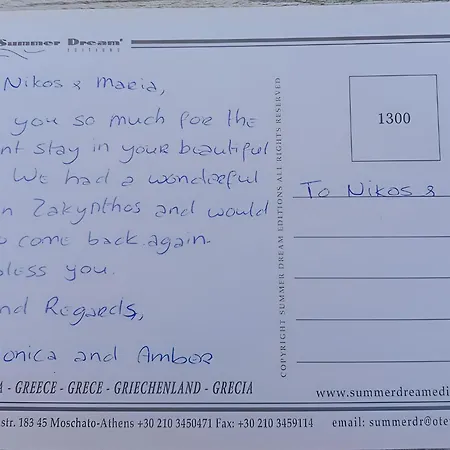 Summer Dream
EDITIONS
Nikos & Maria,
you so much for the
nt stay in your beautiful
We had a wonderful
n Zakynthos and would
o come back again.
bless you.
nd Regards,
onica and Amber
COPYRIGHT SUMMER DREAM EDITIONS ALL RIGHTS RESERVED
1300
To Nikos &
A - GREECE - GRECE - GRIECHENLAND - GRECIA
www.summerdreamedi
str. 183 45 Moschato-Athens +30 210 3450471 Fax: +30 210 3459114 email: summerdr@ote